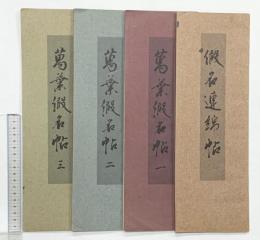 假名連綿帖
萬葉假名帖 一
萬葉假名帖 二
萬葉假名帖 三